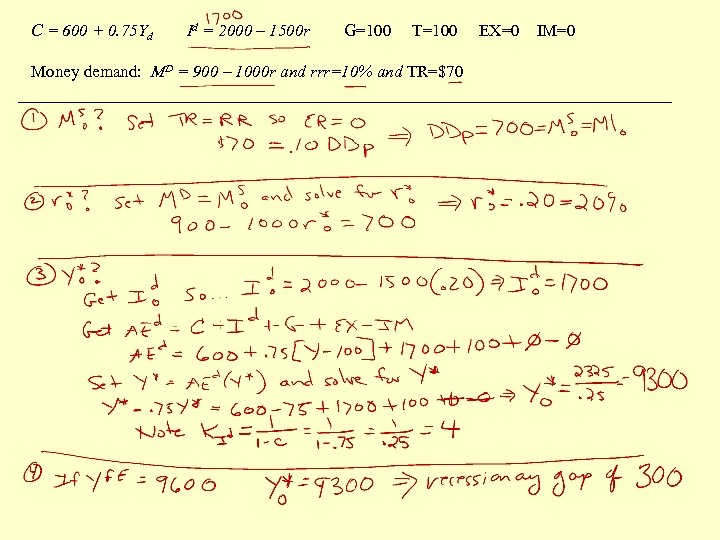 1700
C = 600 + 0.75Yd Id = 2000 – 1500r G=100 T=100 EX=0 IM=0
Money demand: MD = 900 – 1000r and rrr=10% and TR=$70
① Mˢ₀? Set TR=RR so ER=0
$70 = .10 DDp ⇒ DDp=700=Mˢ₀=M1₀
② r*₀? Set Mᴰ=Mˢ₀ and solve for r*₀ ⇒ r*₀=.20=20%
900-1000r*₀=700
③ Y*₀?
Get Iᵈ₀ so... Iᵈ₀=2000-1500(.20)⇒Iᵈ₀=1700
Get AEᵈ=C+Iᵈ+G+EX-IM
AEᵈ=600+.75[Y-100]+1700+100+0-0
Set Y*=AEᵈ(Y*) and solve for Y*
Y*-.75Y*=600-75+1700+100+0-0 ⇒ Y*₀=2325/.25=9300
Note K_Id=1/(1-c)=1/(1-.75)=1/.25=4
④ If YFE=9600 Y*₀=9300 ⇒ recessionary gap of 300